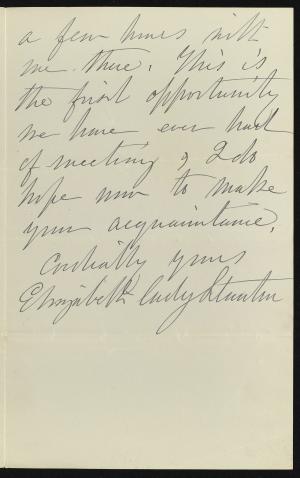 a few hours with
me there. This is
the first opportunity
we have ever had
of meeting & I do
hope now to make
your acquaintance.
Cordially yours
Elizabeth Cady Stanton